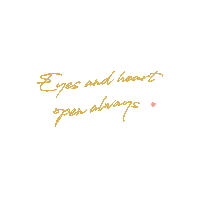 Eyes and heart
open always